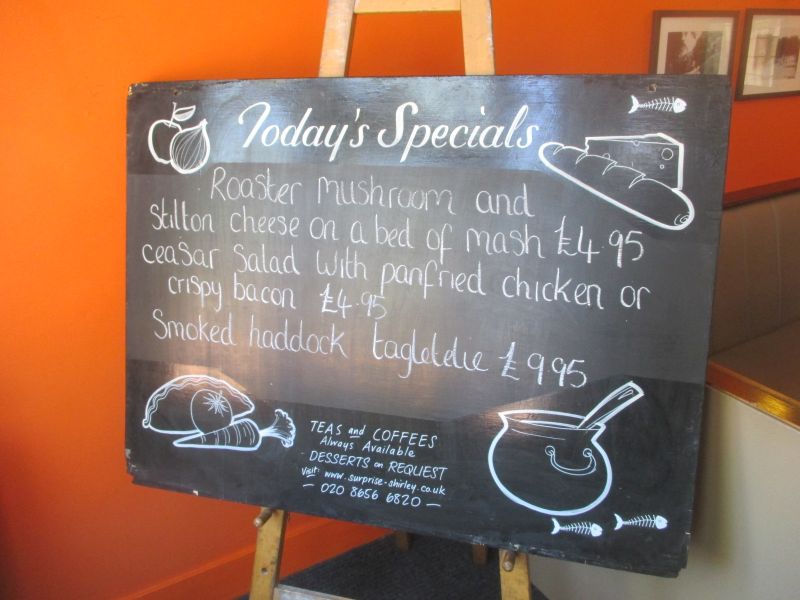 Today's Specials
Roaster mushroom and
stilton cheese on a bed of mash £4.95
ceasar salad with panfried chicken or
crispy bacon £4.95
Smoked haddock tagleteie £9.95
TEAS and COFFEES
Always Available
DESSERTS on REQUEST
Visit: www.surprise-shirley.co.uk
— 020 8656 6820 —